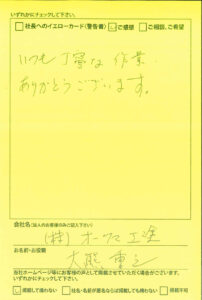 いずれかにチェックして下さい。
社長へのイエローカード(警告書) ご感想 ご相談、ご希望
いつも丁寧な作業、
ありがとうございます。
会社名(法人のお客様のみご記入下さい)
(株)オークマ工塗
お名前・お役職
大熊
当社ホームページ等にお客様の声として掲載させていただく場合がございます。
いずれかにチェックして下さい。
掲載して構わない 社名・名前が匿名ならば掲載しても構わない 掲載不可